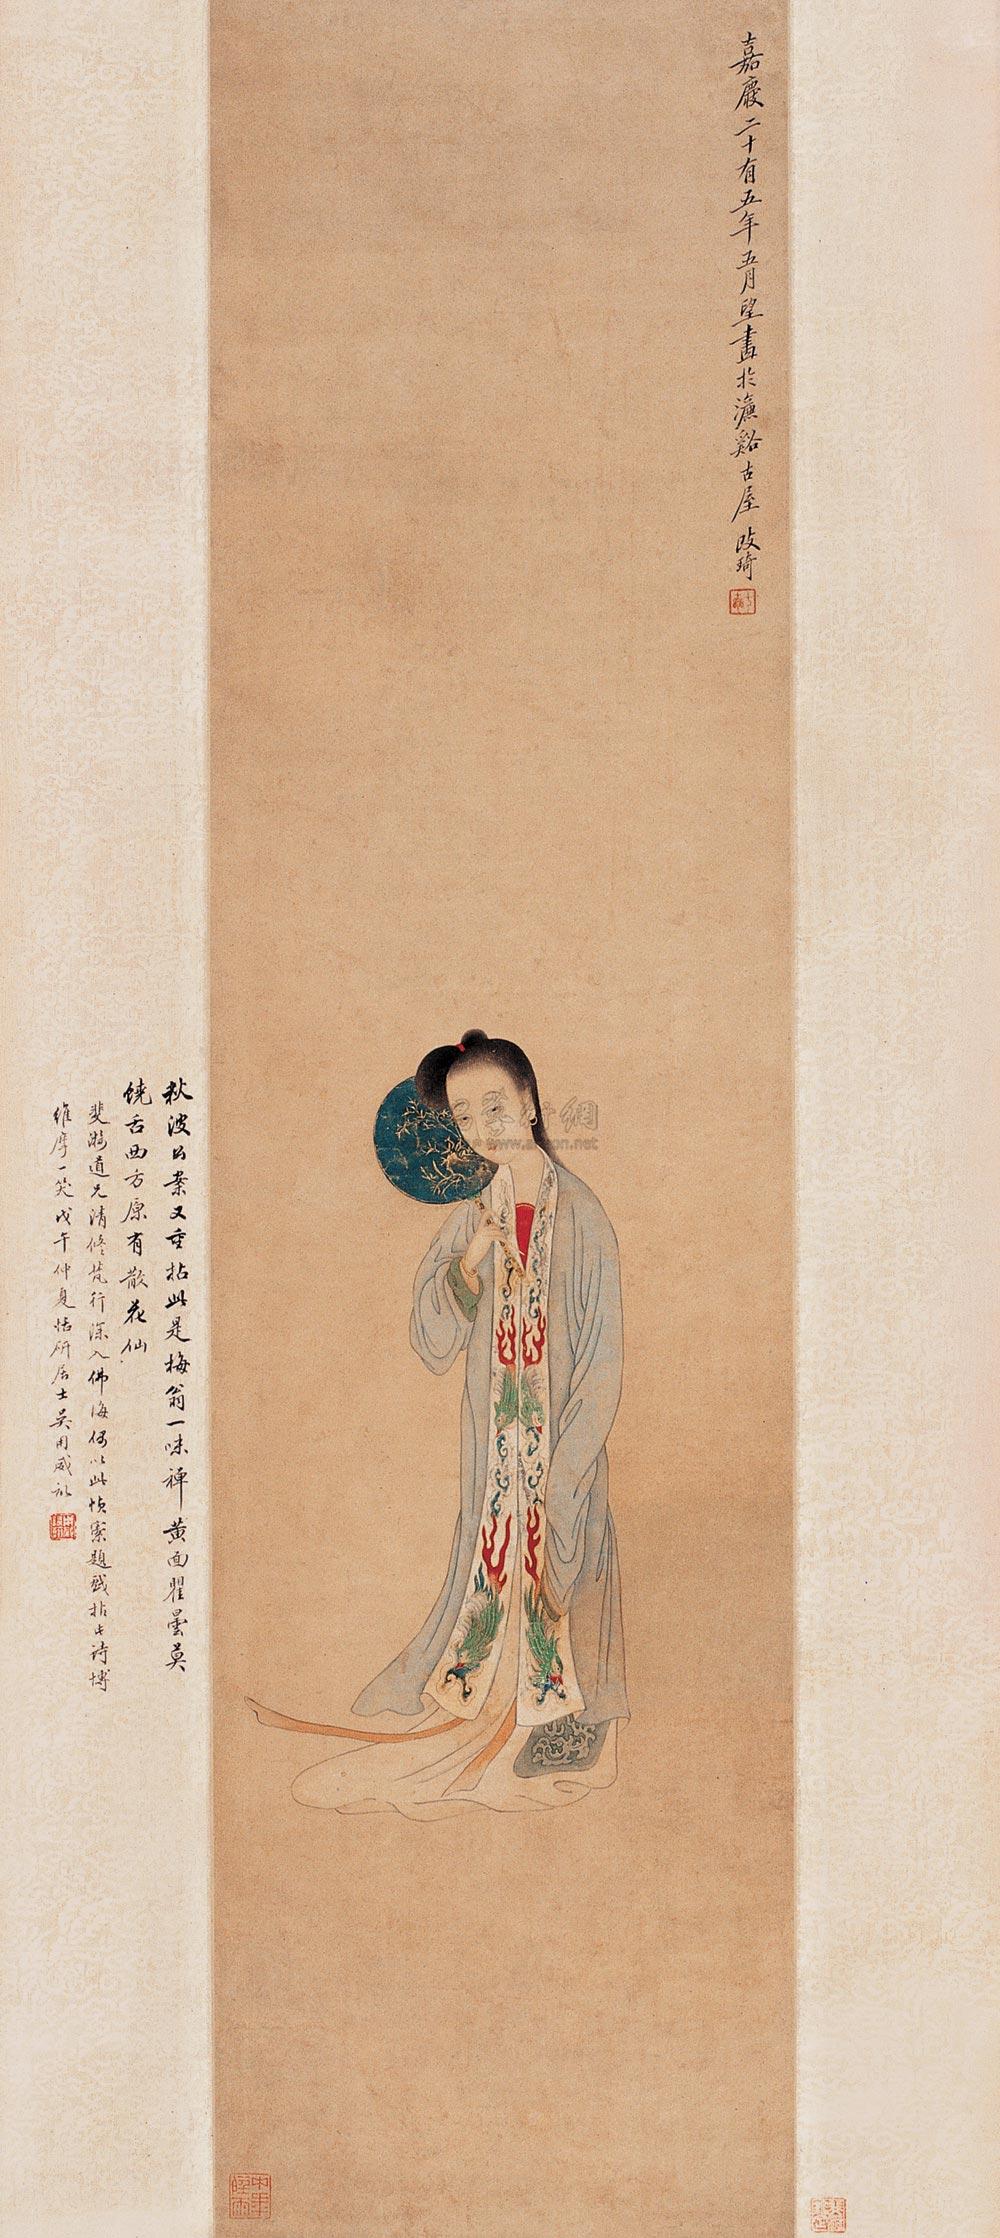 嘉慶二十有五年五月望畫於濂谿古屋 改琦
秋波公案又重拈此是梅翁一味禪黃面瞿曇莫
饒舌西方原有散花仙
斐漪道兄清修梵行深入佛海何以此幀索題戲拈七诗博
維摩一笑戊午仲夏恬研居士吳用威
www.artron.net